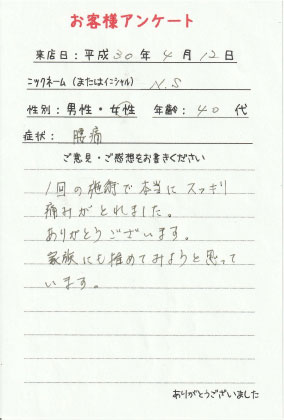 お客様アンケート
来店日：平成30年4月12日
ニックネーム（またはイニシャル） N.S
性別：男性・女性 年齢：40代
症状：腰痛
ご意見・ご感想をお書きください
1回の施術で本当にスッキリ
痛みがとれました。
ありがとうございます。
家族にも推めてみようと思って
います。
ありがとうございました